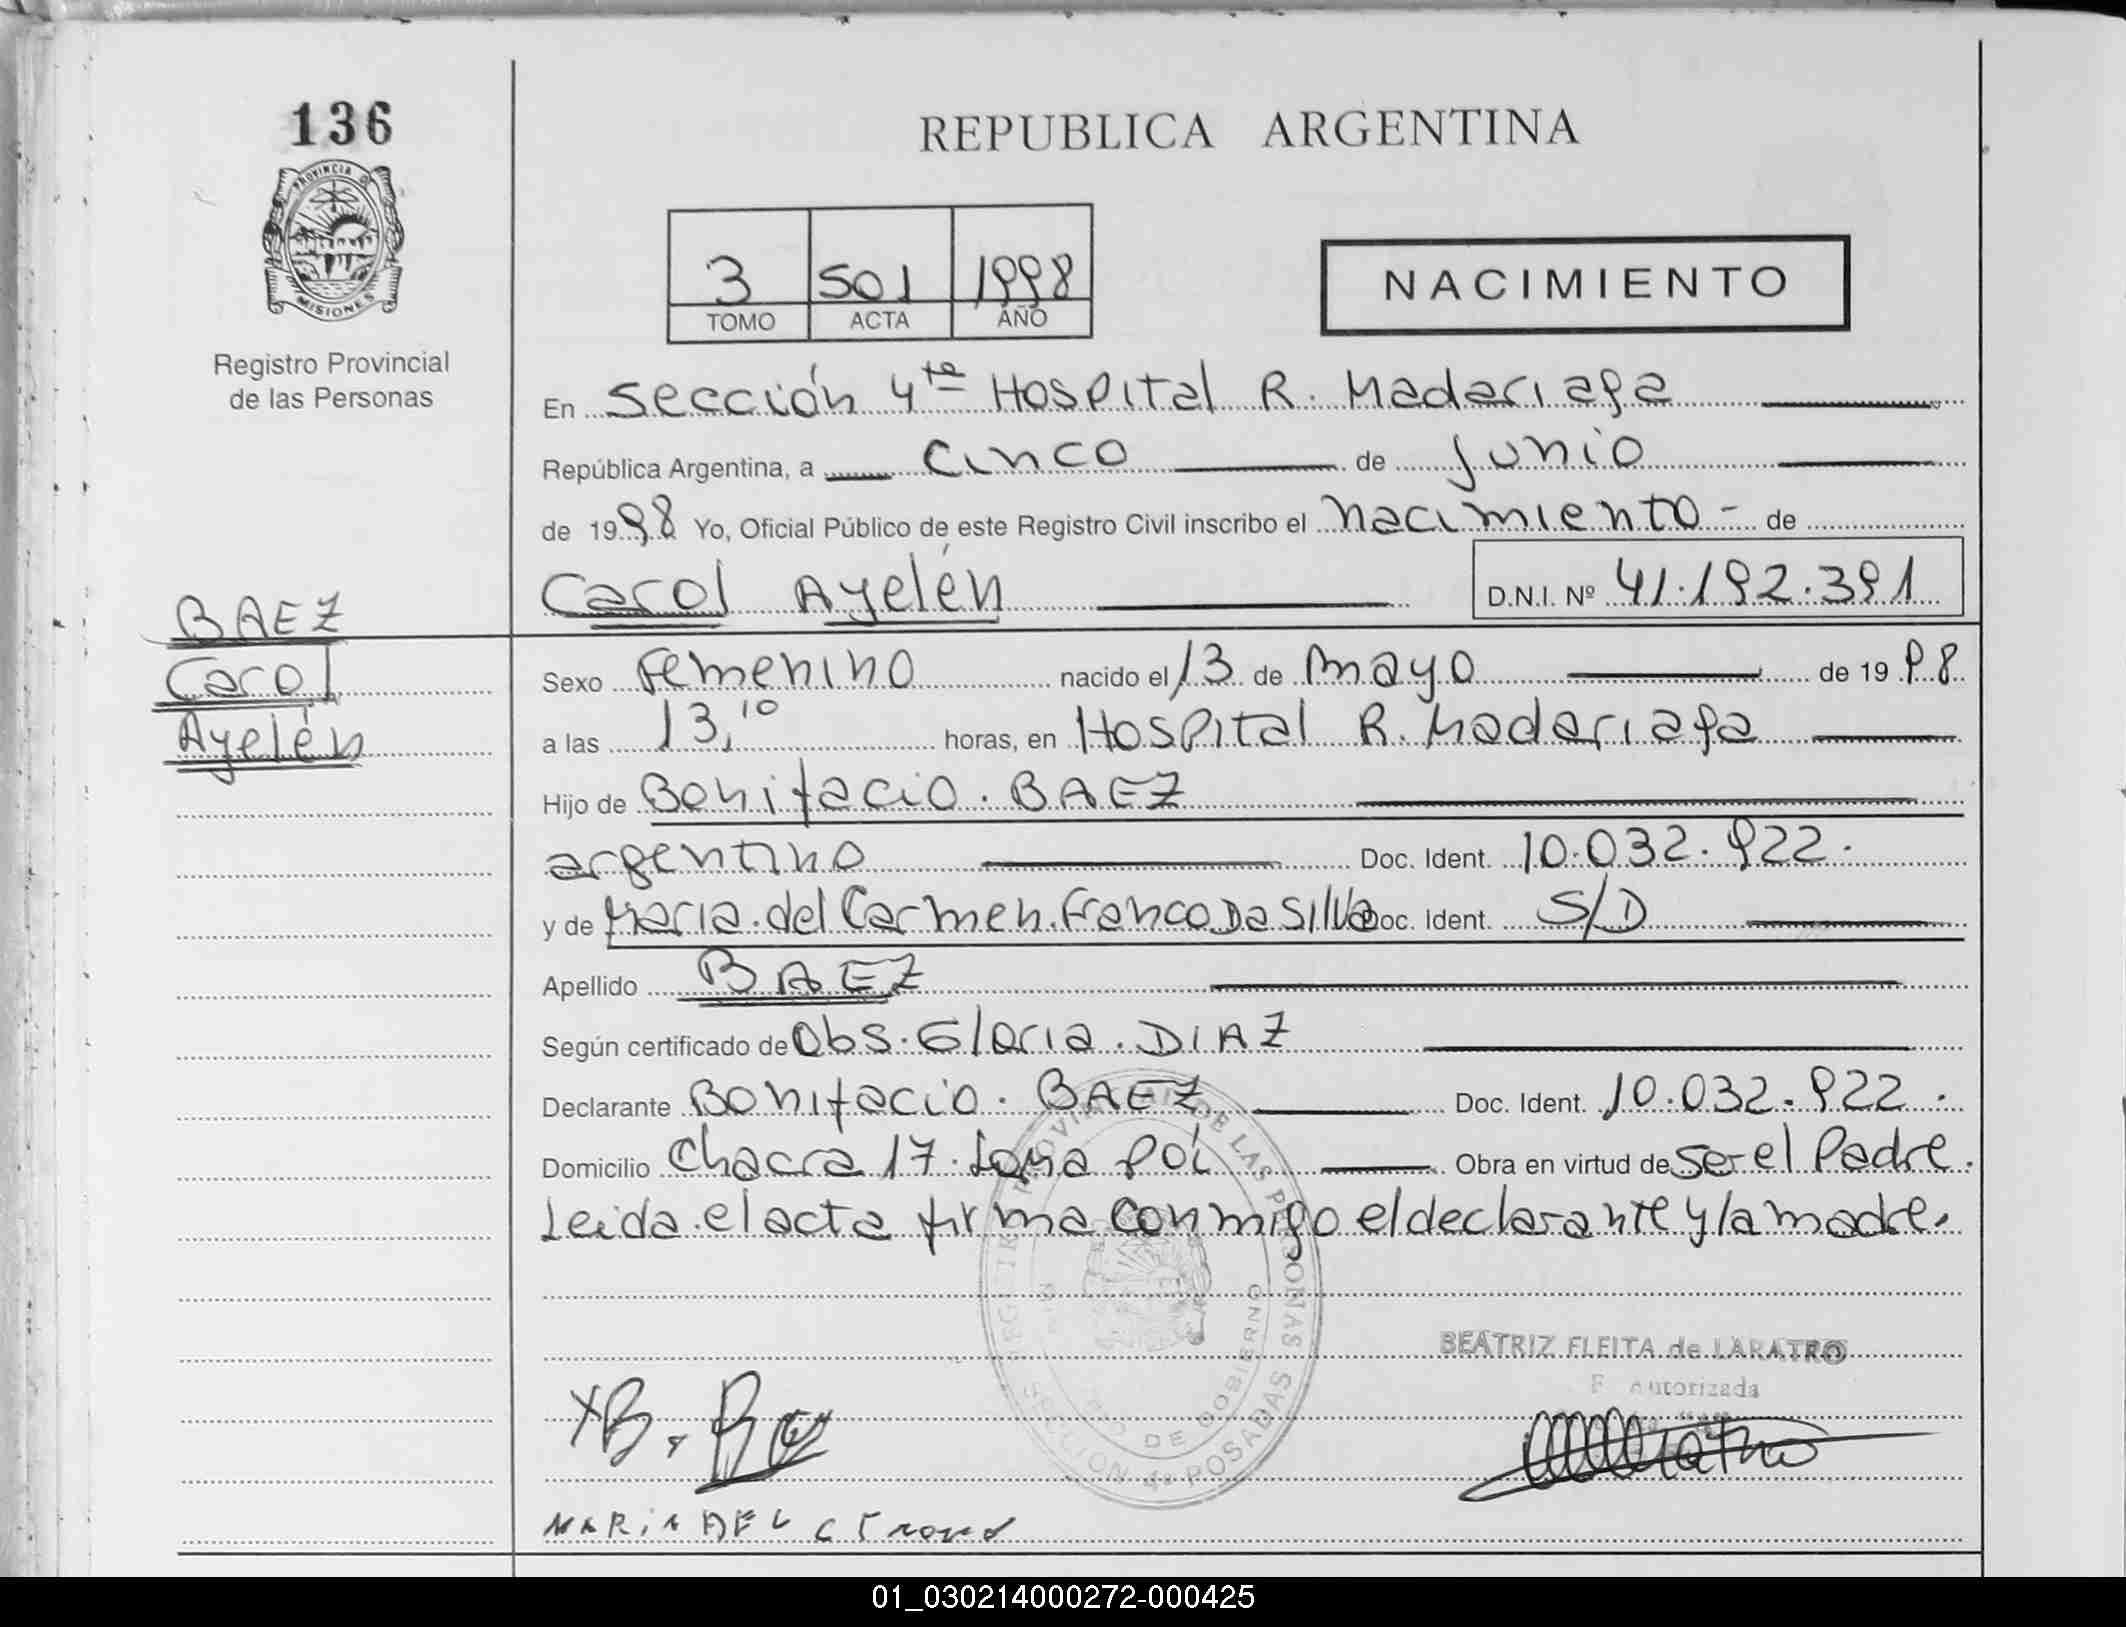 136
PROVINCIA DE
MISIONES
Registro Provincial
de las Personas
REPUBLICA ARGENTINA
3 501 1998
TOMO ACTA AÑO
NACIMIENTO
En Sección 4ta Hospital R. Madariaga
República Argentina, a cinco de junio
de 1998 Yo, Oficial Público de este Registro Civil inscribo el nacimiento - de
Carol Ayelén D.N.I. Nº 41.192.391
BAEZ
Carol
Ayelén
Sexo Femenino nacido el 13 de mayo de 1998
a las 13,10 horas, en Hospital R. Madariaga
Hijo de Bonifacio. BAEZ
argentino Doc. Ident. 10.032.922.
y de Maria.del Carmen.Franco Da Silva Doc. Ident. S/D
Apellido BAEZ
Según certificado de Obs. Gloria. DIAZ
Declarante Bonifacio. BAEZ Doc. Ident. 10.032.922.
Domicilio Chacra 17. Loma Poí Obra en virtud de ser el Padre.
Leida.el acta firma conmigo el declarante y la madre.
DE LAS PERSONAS
DE GOBIERNO
SECCION 4ª POSADAS
BEATRIZ FLEITA de LARATRO
Autorizada
B. Bae
MARIA DEL C
01_030214000272-000425